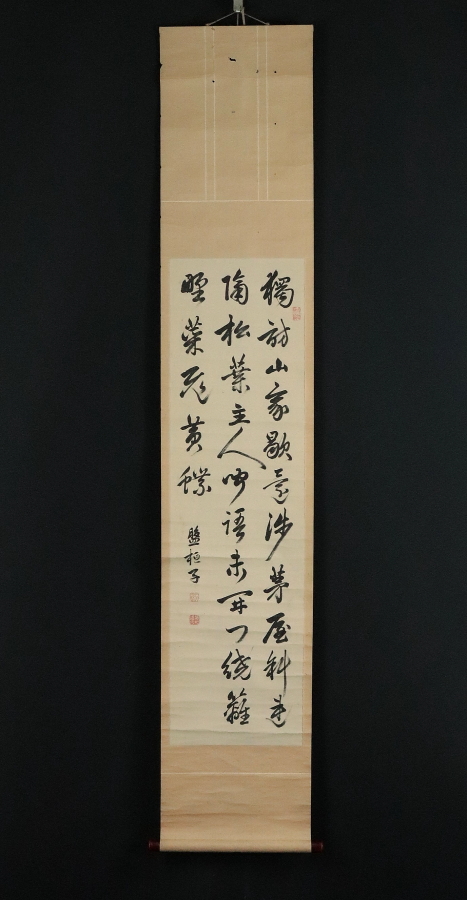 獨訪山家歇還涉茅屋斜連
隔松葉主人聞語未開門繞籬
野菜飛黃蝶
盤桓子